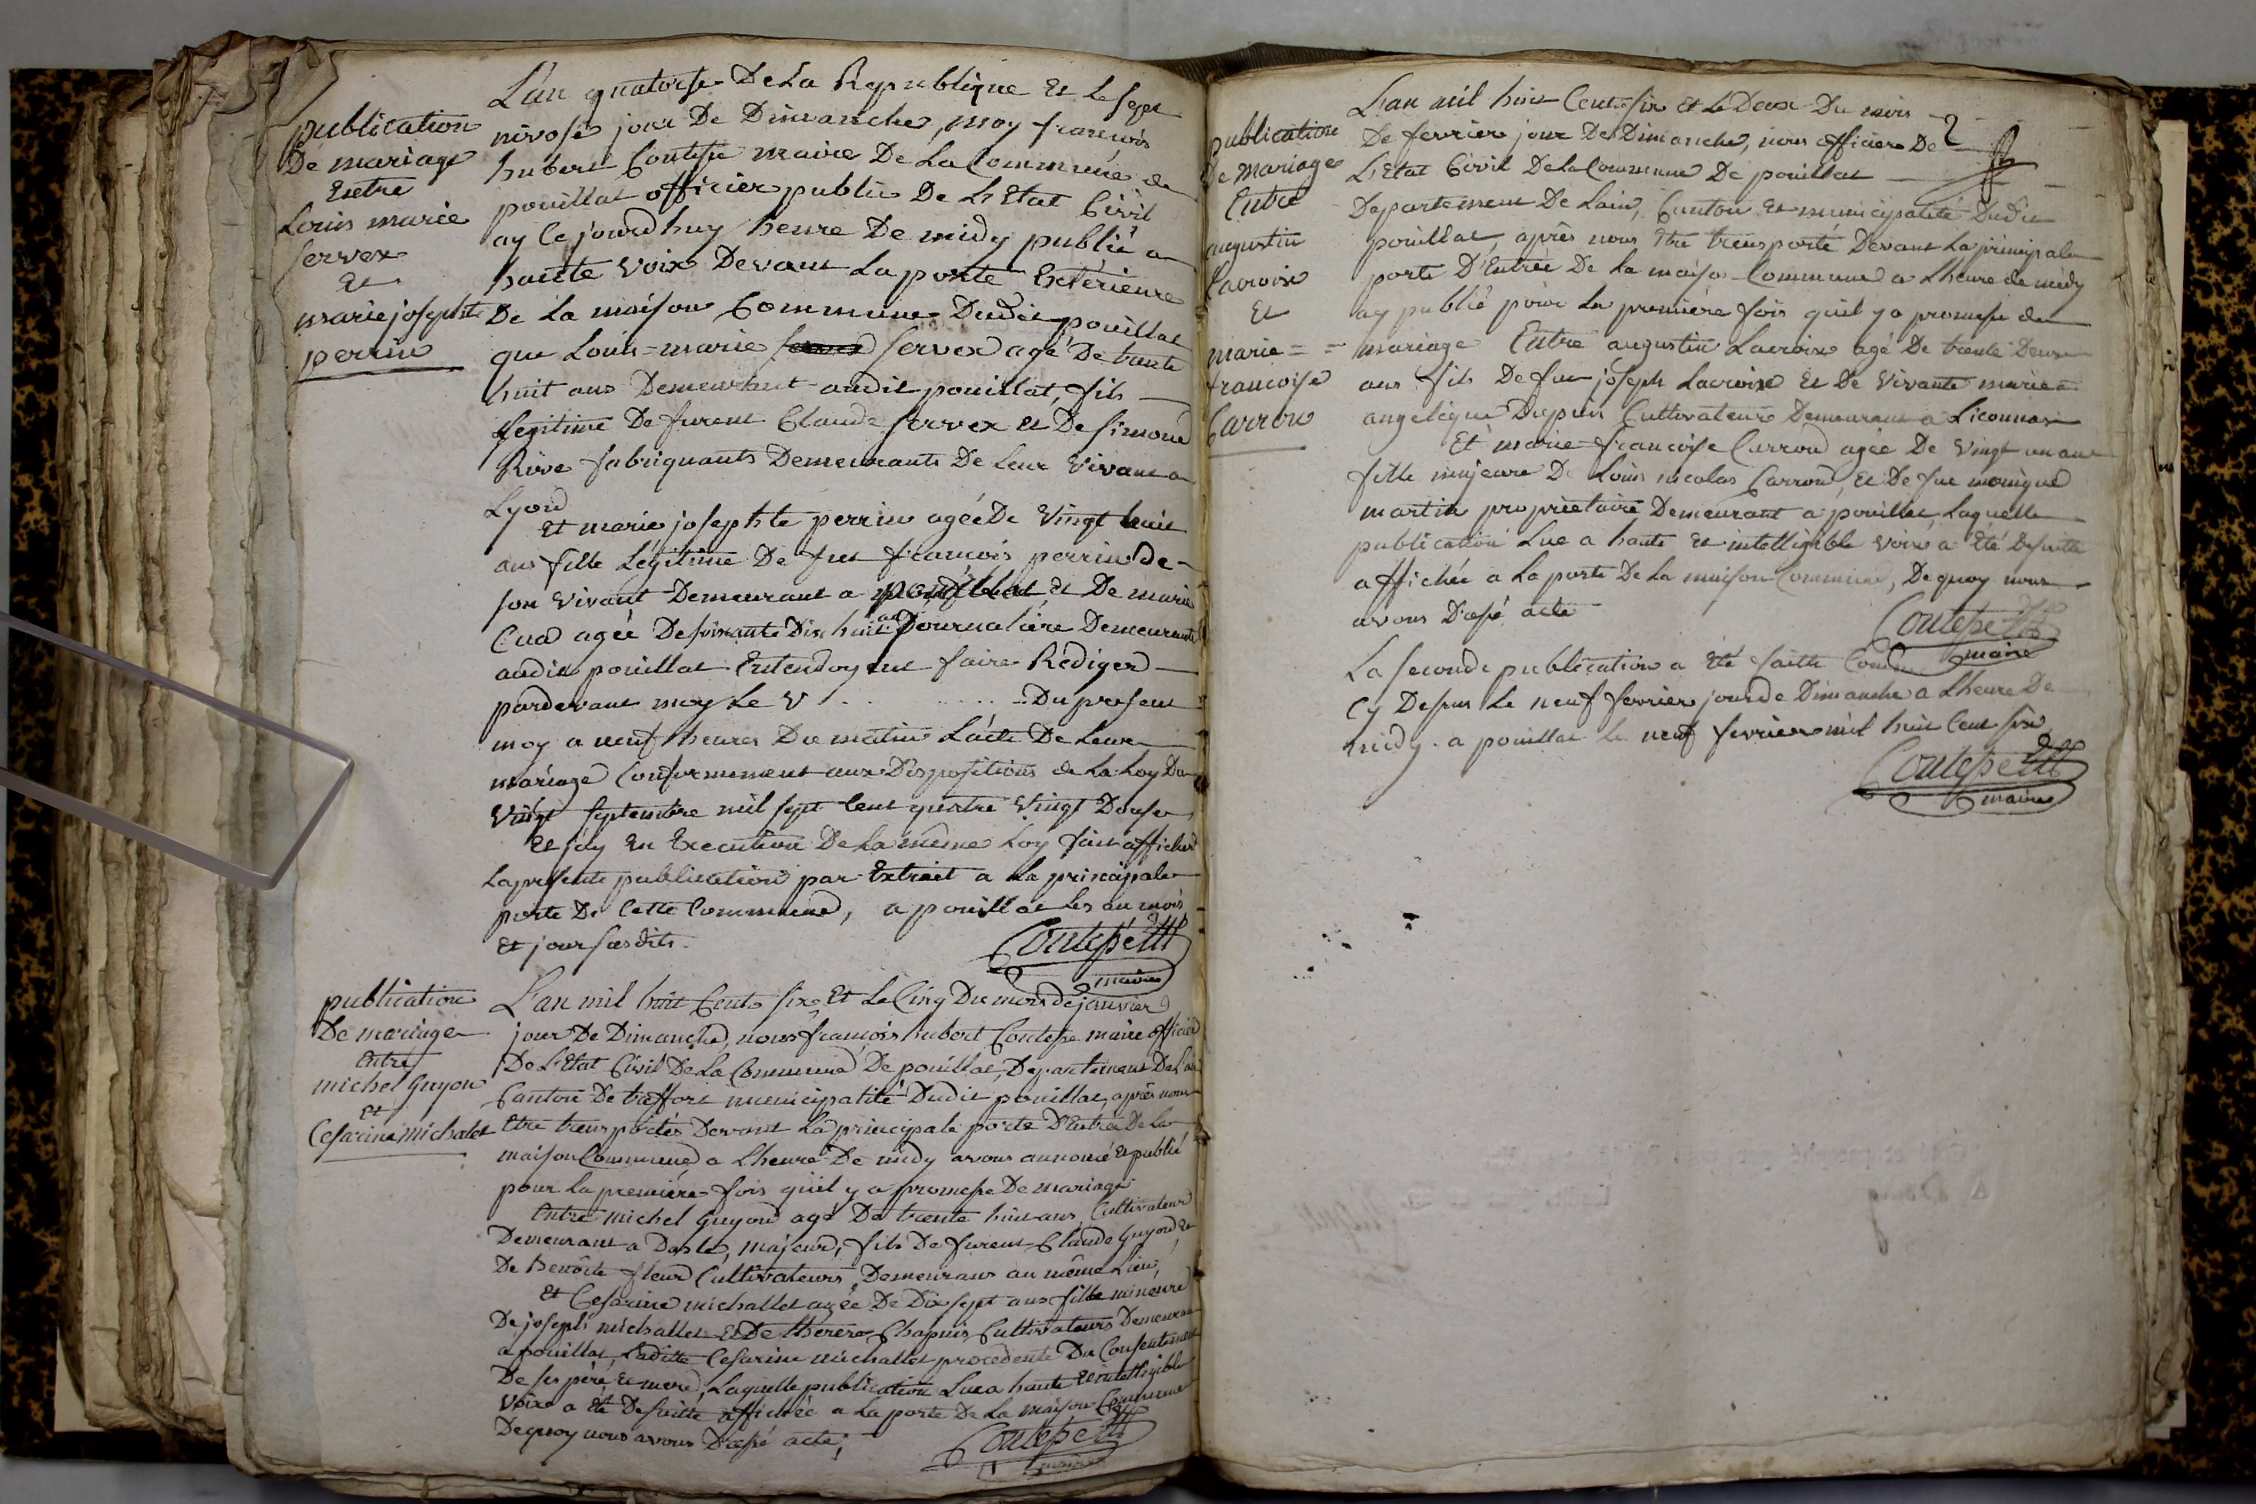 publication
De mariage
Entre
Louis marie
Servex
Et
marie josephte
perrin
L'an quatorse De La Republique Et le sept
nivose jour De Dimanche, moy francois
hubert Contesse maire De La Commune de
pouillat officier public De L'Etat Civil
ay Ce jourdhuy heure De midy publié a
haute voix Devant La porte Extérieure
De La maison Commune Dudit pouillat
que Louis-marie servex agé De trante
huit ans Demeurant audit pouillat, fils
légitime De furent Claude servex et De simone
Rive fabriquants Demeurants De Leur Vivant a
Lyon
Et marie josephte perrin agée De Vingt huit
ans fille Légitime De feu francois perrin de
son vivant Demeurant a pouillat et De marie
Cua agée De soixante Dix huit ans journalière Demeurante
audit pouillat Entendoyent faire Rédiger
pardevant moy Le V . . . . . . Du present
moy a neuf heures Du matin L'acte De Leur
mariage Conformement aux Dispositions de La Loy Du
Vingt Septembre mil sept Cent quatre Vingt Douse
Et j'ay En Execution De La même Loy fait afficher
La presente publication par Extrait a La principale
porte De Cette Commune, a pouillat Les an mois
Et jour susdits.
Contesse
maire
publication
De mariage
Entre
michel Guyon
Et
Cesarine michalet
L'an mil huit Cents six, Et Le Cinq Du mois de janvier
jour De Dimanche, nous francois hubert Contesse maire officier
De L'Etat Civil De La Commune De pouillat, Departement De L'ain
Canton De treffort municipalité Dudit pouillat, après nous
Etre transportés Devant La principale porte D'Entrée De La
maison Commune a L'heure De midy avons annoncé Et publié
pour La première fois quil y a promesse De mariage
Entre michel Guyon agé De trente huit ans, Cultivateur
Demeurant a Dasle, majeur, fils De furent Claude Guyon, Et
De Benoite fleur Cultivateurs, Demeurans au même Lieu,
Et Cesarine michallet agée De Dix sept ans fille mineure
De joseph michallet Et De therese Chapuis Cultivateurs Demeurans
a pouillat, Laditte Cesarine michallet procedente Du Consentement
De ses père Et mere, Laquelle publication Lue a haute Et intelligible
Voix a Eté De suitte affichée a La porte De La maison Commune
De quoy nous avons Dressé acte;
Contesse
maire
publication
De mariage
Entre
augustin
Lacroix
Et
marie = =
francoise
Carron
L'an mil huit Cent six Et Le Deux Du mois
De fevrier jour De Dimanche, nous officier De
L'Etat Civil De La Commune De pouillat
Departement De Lain, Canton Et municipalité Dudit
pouillat, après nous Etre transporté Devant La principale
porte D'Entrée De La maison Commune a Lheure de midy
ay publié pour La première fois quil y a promesse de
mariage Entre augustin Lacroix agé De trente Deux
ans fils De feu joseph Lacroix Et De Vivante marie
angelique Dupuis Cultivateurs Demeurant a Liconnas
Et marie francoise Carron agée De Vingt un an
fille majeure De Louis nicolas Carron, Et De feue monique
martin propriétaire Demeurant a pouillat, Laquelle
publication Lue a haute Et intelligible voix a Eté De suitte
affichée a La porte De La maison Commune, De quoy nous
avons Dressé acte
Contesse
maire
La seconde publication a Eté faitte Comme
Cy Dessus Le neuf fevrier jour de Dimanche a Lheure De
midy. a pouillat Le neuf fevrier mil huit Cent six
Contesse
maire